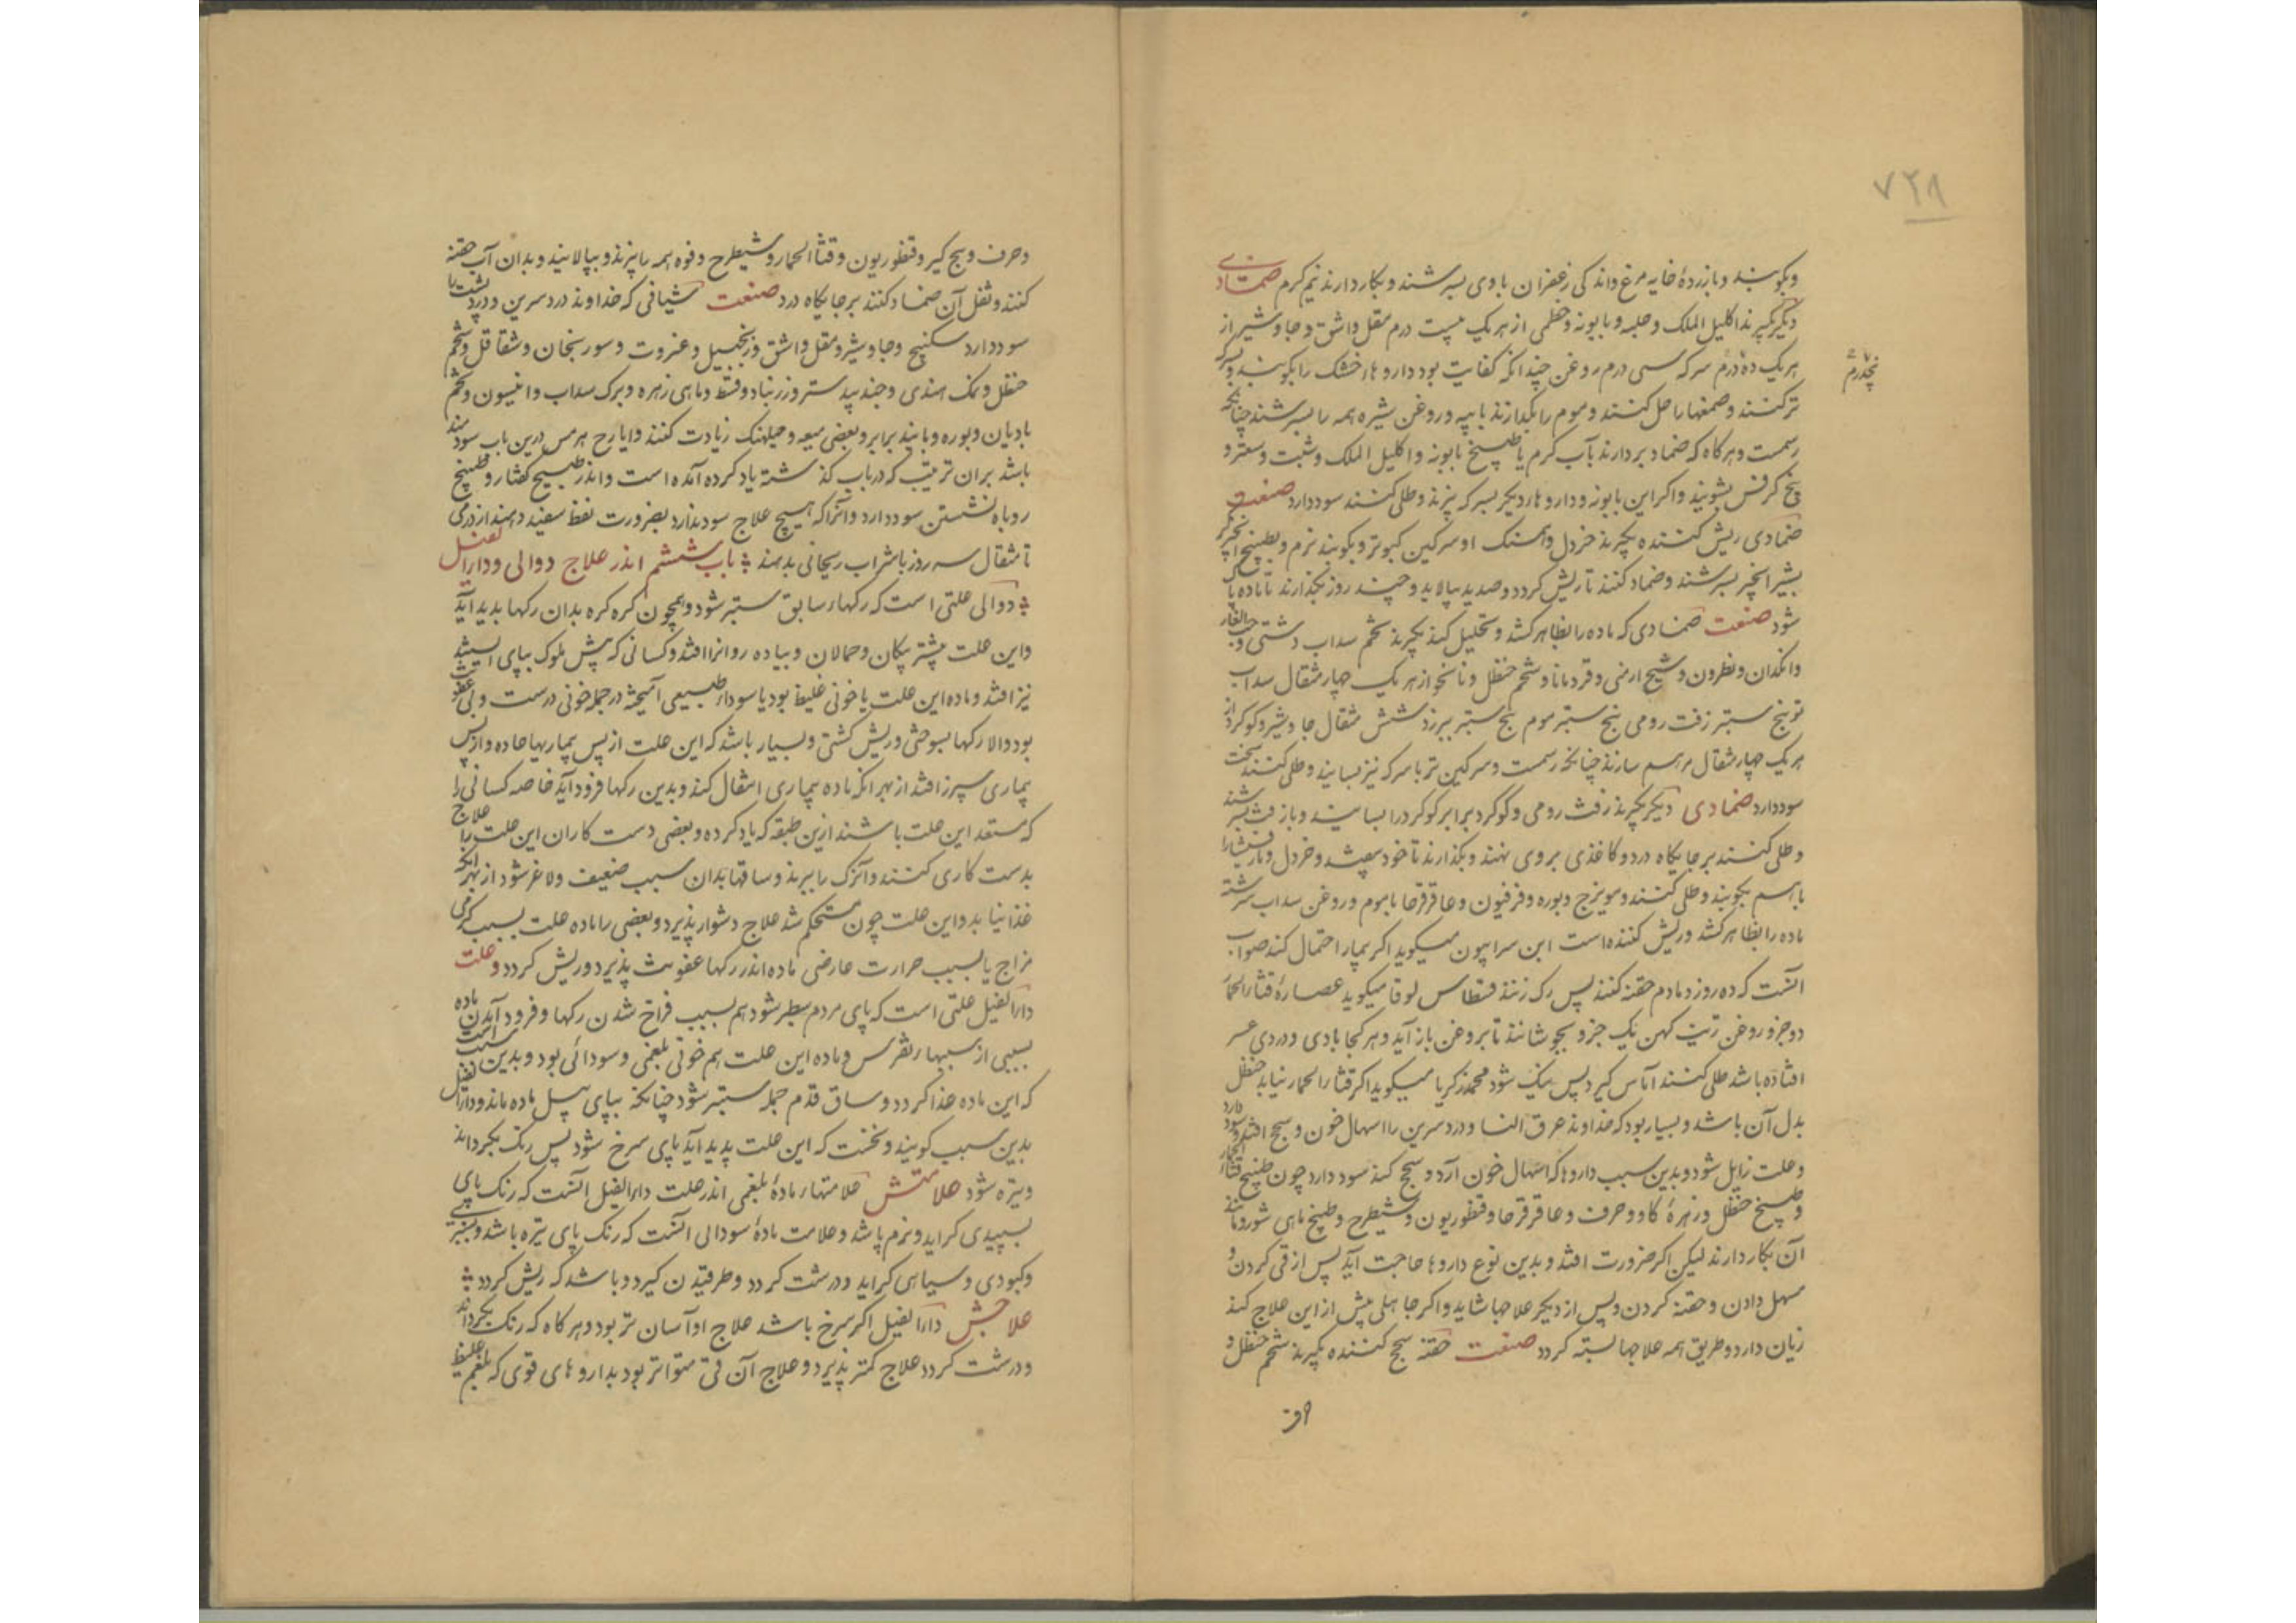 ۷۲۸
وبکوبند وبازردهٔ خایه مرغ واندکی زعفران باوی بسرشند وبکار دارند نیم کرم ضمادی
دیگر بگیرند اکلیل الملک وحلبه وبابونه وخطمی از هر یک بیست درم مقل واشق وجاوشیر از
هر یک ده درم سرکه سی درم روغن چندانکه کفایت بود داروهار خشک را بکوبند وبسرکه
پنجدرم
ترکنند وصمغهارا حل کنند وموم را بگدازند با پیه وروغن شیره همه را بسرشند چنانکه
رسمست وهرکاه که ضماد بردارند بآب کرم یا طبیخ بابونه واکلیل الملک وشبت وسعتر و
بیخ کرفس بشویند واکر این بابونه وداروهار دیگر بسرکه بپزند وطلی کنند سود دارد صنعت
ضمادی ریش کننده بگیرند خردل وهمسنک او سرکین کبوتر وبکوبند نرم وبطبیخ انجیر
بشیر انجیر بسرشند وضماد کنند تا ریش کردد وصدید بپالاید وچند روز بگذارند تا ماده پاک
شود صنعت ضمادی که ماده را بظاهر کشد وتحلیل کند بگیرند تخم سداب دشتی وحب الغار
وانکدان ونطرون وشیح ارمنی وقردمانا وشحم حنظل ونانخواه از هر یک چهار مثقال سداب
تر پنج ستیر زفت رومی پنج ستیر موم پنج ستیر بیرزد شش مثقال جاوشیر وکوکرد از
هر یک چهار مثقال مرهم سازند چنانکه رسمست وسرکین تر با سرکه نیز بسایند وطلی کنند سخت
سود دارد ضمادی دیگر بگیرند زفت رومی وکوکرد برابر کوکرد را بسایند وبا زفت بسرشند
وطلی کنند برجایکاه درد وکاغذی بر وی نهند وبگذارند تا خود بیفتد وخردل وتافسیا را
با هم بکوبند وطلی کنند ومویزج وبوره وفرفیون وعاقرقرحا با موم وروغن سداب سرشته
ماده را بظاهر کشد وریش کننده است ابن سرابیون میکوید اکر بیمار احتمال کند صواب
آنست که ده روز دمادم حقنه کنند پس رک زنند قسطاس لوقا میکوید عصارهٔ قثاء الحمار
دو جزو روغن زیت کهن یک جزو بجوشانند تا بروغن باز آید وهر کجا بادی ودردی عسر
افتاده باشد طلی کنند آماس کیرد پس نیک شود محمد زکریا میکوید اکر قثاء الحمار نیابد حنظل
بدل آن باشد وبسیار بود که خداوند عرق النسا ودرد سرین را اسهال خون وسحج افتد وسود دارد
وعلت زایل شود وبدین سبب داروها که اسهال خون آرد وسحج کند سود دارد چون طبیخ قثاء الحمار
وطبیخ حنظل وزهرهٔ کاو وحرف وعاقرقرحا وقنطوریون وشیطرج وطبیخ ماهی شور ومانند
آن بکار دارند لیکن اکر ضرورت افتد وبدین نوع داروها حاجت آید پس از قی کردن و
مسهل دادن وحقنه کردن وپس از دیگر علاجها شاید واکر جاهلی پیش از این علاج کند
زیان دارد وطریق همه علاجها بسته کردد صنعت حقنه سحج کننده بگیرند شحم حنظل و
وحرف وبیخ کبر وقنطوریون وقثا الحمار وشیطرج وفوه همه را بپزند وبپالایند وبدان آب حقنه
کنند وثفل آن ضماد کنند برجایکاه درد صنعت شیافی که خداوند درد سرین ودرد پشت را
سود دارد سکبینج وجاوشیر ومقل واشق وزنجبیل وعنزروت وسورنجان وشقاقل وشحم
حنظل ونمک هندی وجند بیدستر وزرنباد وقسط وماهی زهره وبرک سداب وانیسون وتخم
بادیان وبوره وبانید برابر وبعضی میعه وحبلهنک زیادت کنند وایارج هرمس درین باب سودمند
باشد بران ترتیب که در باب کذشته یاد کرده آمده است واندر طبیخ کفتار وطبیخ
روباه نشستن سود دارد وآنرا که هیچ علاج سود ندارد بضرورت نفط سفید دهند از درمی
تا مثقال سه روز با شراب ریحانی بدهند باب ششم اندر علاج دوالی وداء الفیل
دوالی علتی است که رکهاء ساق ستبر شود وهمچون کره کره بدان رکها پدید آید
واین علت بیشتر پیکان وحمالان وپیاده روانرا افتد وکسانی که پیش ملوک بپای ایستند
نیز افتد وماده این علت یا خونی غلیظ بود یا سوداء طبیعی آمیخته در جمله خونی درست وبی عفونت
بود والا رکها بسوختی وریش کشتی وبسیار باشد که این علت از پس بیماریها حاده واز پس
بیماری سپرز افتد از بهر آنکه ماده بیماری انتقال کند وبدین رکها فرود آید خاصه کسانی را
که مستعد این علت باشند ازین طبقه که یاد کرده وبعضی دست کاران این علت را علاج
بدست کاری کنند وآن رک را ببرند وساقها بدان سبب ضعیف ولاغر شود از بهر آنکه
غذا نیابد واین علت چون مستحکم شد علاج دشوار پذیرد وبعضی را ماده علت بسبب کرمی
مزاج یا بسبب حرارت عارضی ماده اندر رکها عفونت پذیرد وریش کردد وعلت
داء الفیل علتی است که پای مردم سطبر شود هم بسبب فراخ شدن رکها وفرود آمدن ماده
بسببی از سببهاء نقرس وماده این علت هم خونی بلغمی وسودائی بود وبدین سبب است
که این ماده غذا کردد وساق قدم جمله ستبر شود چنانکه بپای پیل ماده ماند وداء الفیل
بدین سبب کویند ونخست که این علت پدید آید پای سرخ شود پس رنک بگرداند
وتیره شود علامتش علامتهاء مادهٔ بلغمی اندر علت داء الفیل آنست که رنک پای
بسپیدی کراید ونرم باشد وعلامت مادهٔ سودائی آنست که رنک پای تیره باشد وبسبزی
وکبودی وسیاهی کراید ودرشت کردد وطرقیدن کیرد وباشد که ریش کردد
علاجش داء الفیل اکر سرخ باشد علاج او آسان تر بود وهرکاه که رنک بگرداند
ودرشت کردد علاج کمتر پذیرد وعلاج آن قی متواتر بود بداروهای قوی که بلغم غلیظ